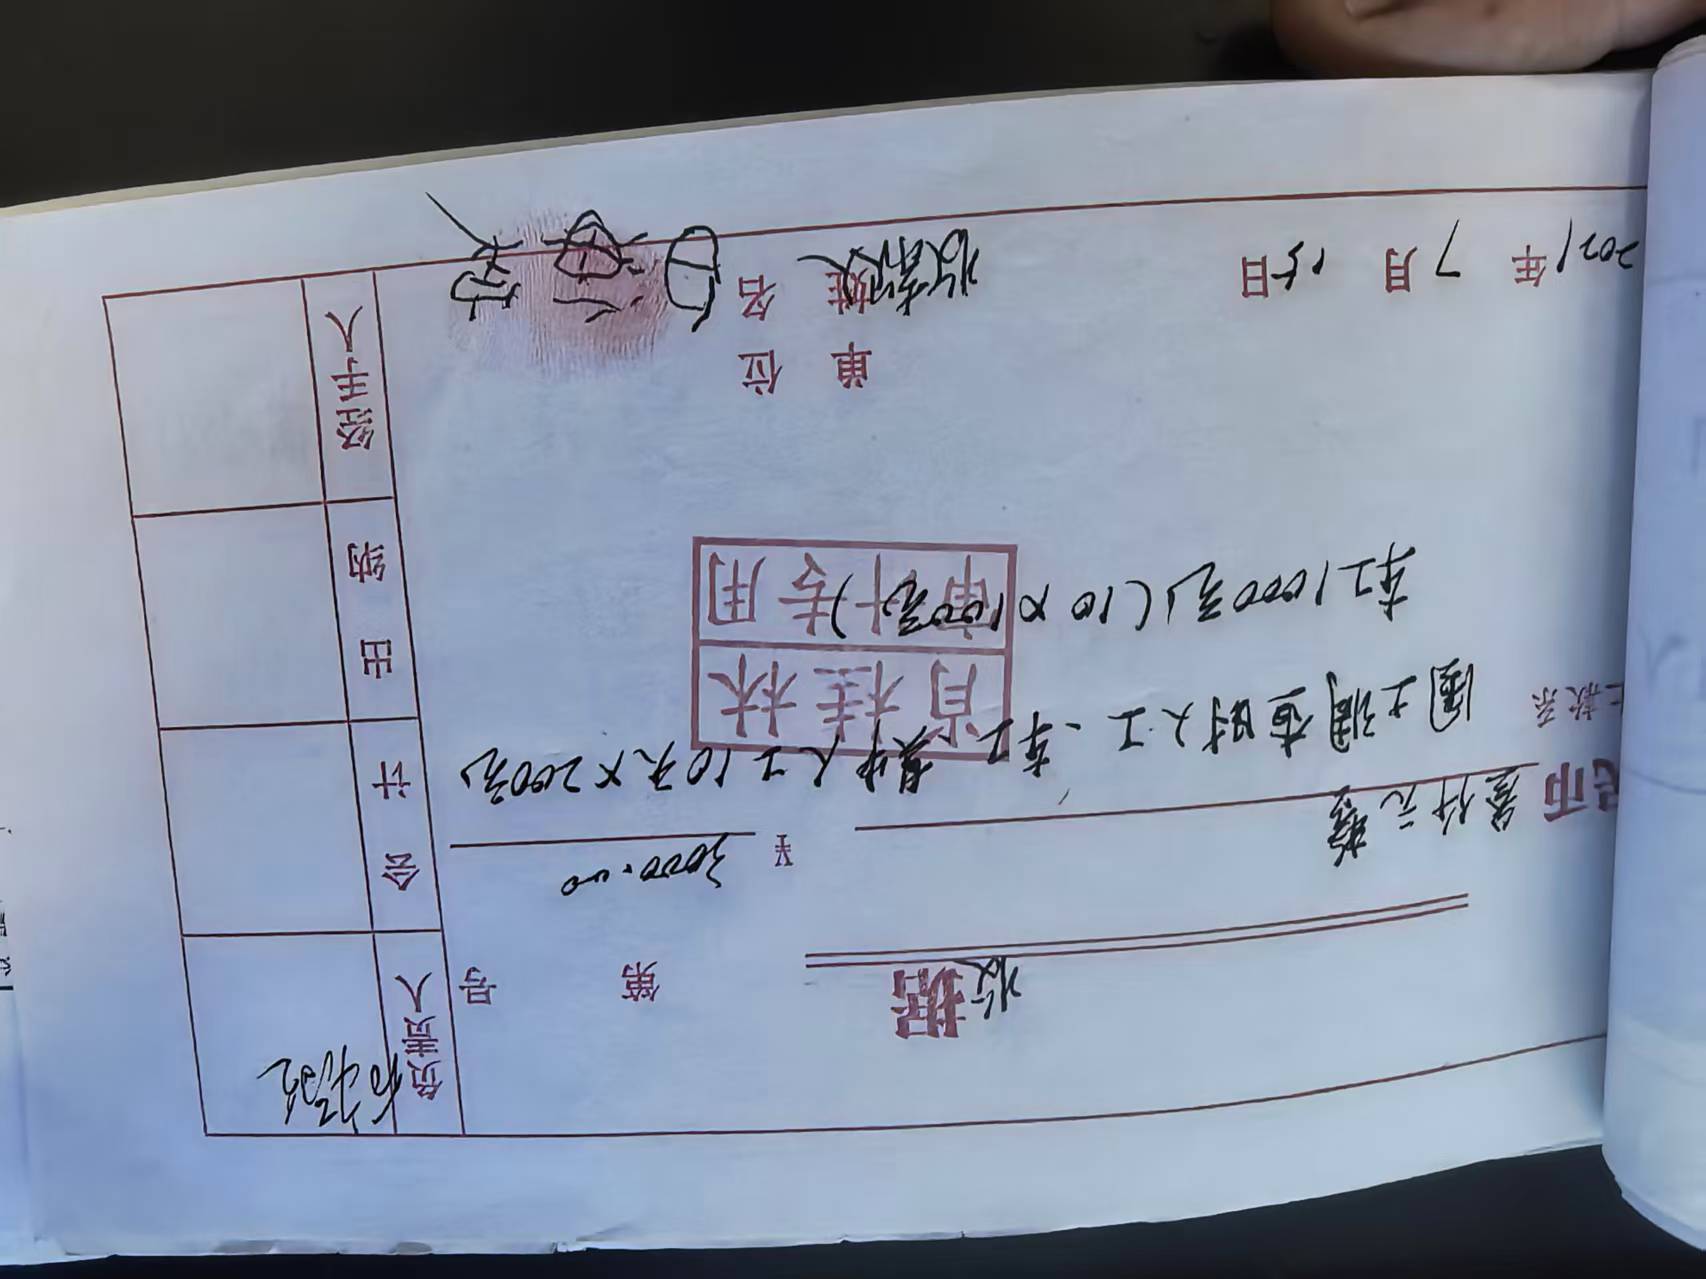 收据
第 号
民币 叁仟元整 ¥ 3000.00
上款系 国土调查时人工、车工、其中人工10天×200元、
车工1000元(10×100元)
肖桂林
审计专用
单位
收款 姓名
2021年7月15日
负责人
会计
出纳
经手人